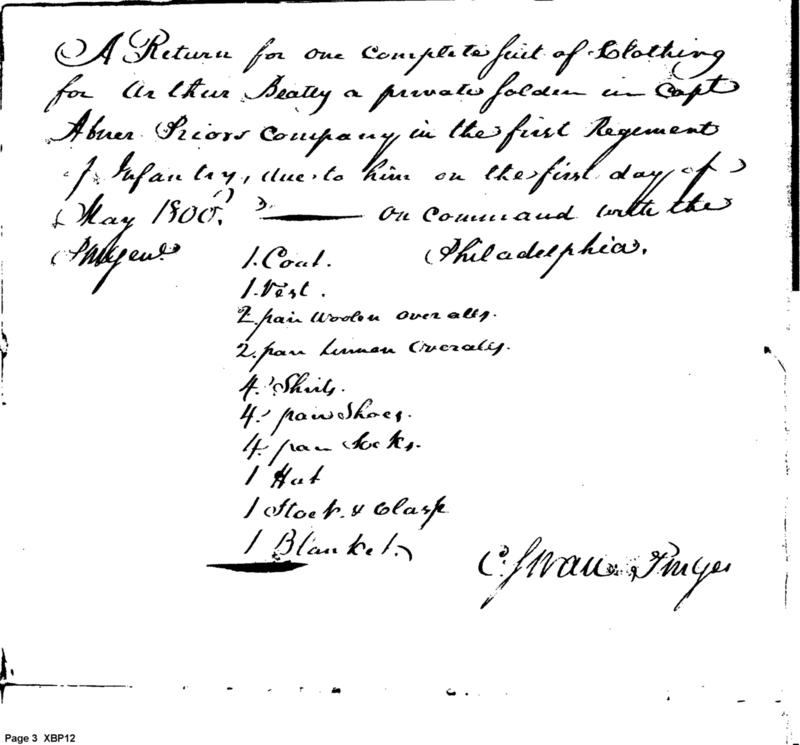 A Return for one complete suit of Clothing
for Arthur Beatty a private soldier in Capt
Abner Priors company in the first Regement
of Infantry, due to him on the first day of
May 1800. on command with the
1. Coat. Philadelphia.
1. Vest.
2. pair Woolen overalls.
2. pair Linnen Overalls.
4. Shirts.
4. pair Shoes.
4. pair Socks.
1 Hat
1 Stock & Clasp
1 Blanket.
C. Swan
Page 3 XBP12